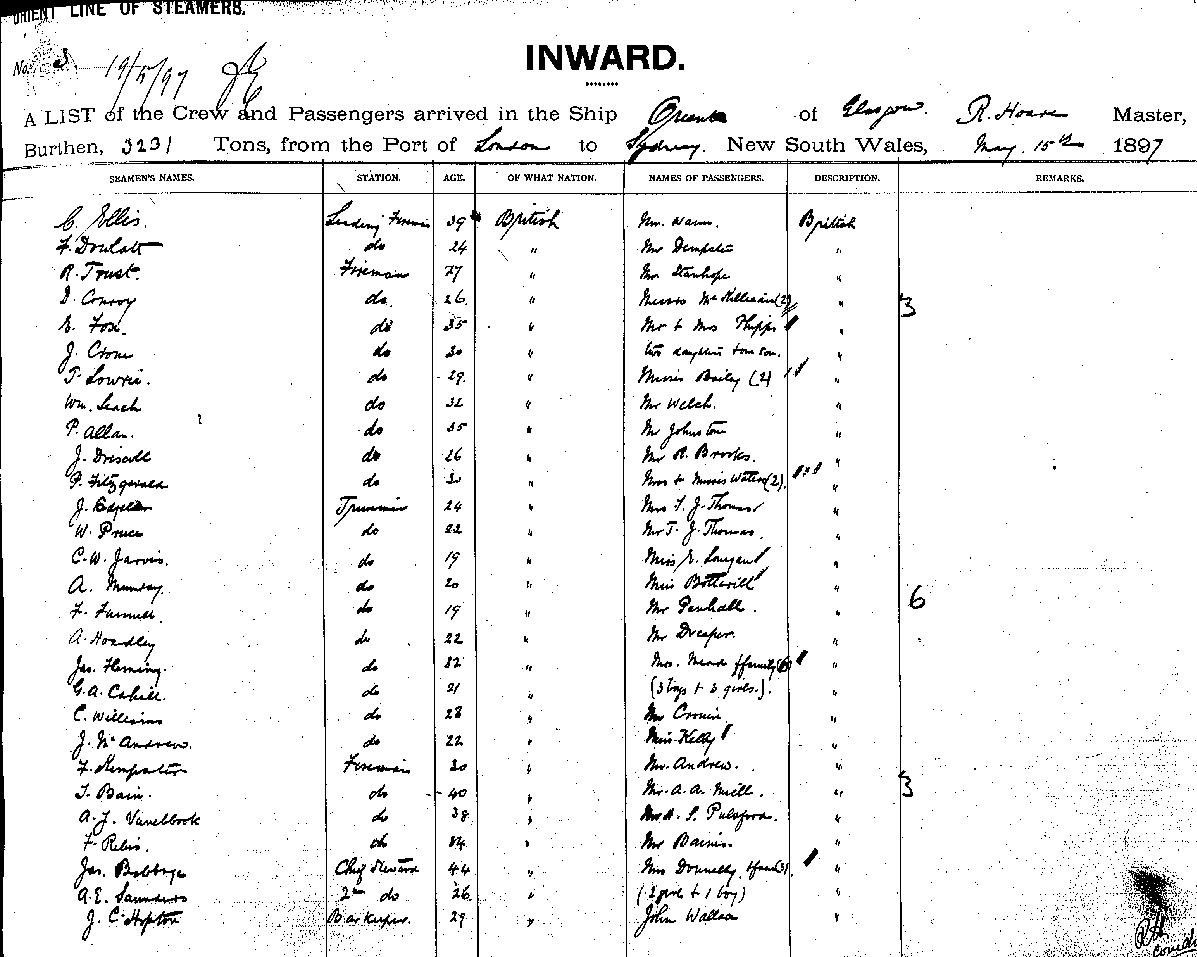 ORIENT LINE OF STEAMERS.
No. 3 19/5/97
INWARD.
A LIST of the Crew and Passengers arrived in the Ship of Glasgow. R. Hoare Master,
Burthen, 3231 Tons, from the Port of London to Sydney. New South Wales, May. 15th 1897
SEAMEN'S NAMES. STATION. AGE. OF WHAT NATION. NAMES OF PASSENGERS. DESCRIPTION. REMARKS.
C. Ellis. Leading Fireman 39 British Mr. British
F. Doulatt do 24 " Mr Dempster "
R. Trust. Fireman 27 " Mr Stanhope "
D. Conroy do. 26 " Misses McKillican (2) " 3
E. Fox. do 35 " Mr & Mrs Phipps "
J. Crone do 30 " two daughters & one son. "
T. Lowrie. do 29. " Misses Bailey (2) "
Wm. Leach do 32 " Mr Welch. "
P. Allan. do 35 " Mr Johnston "
J. Driscoll do 26 " Mr R. Brooks. "
P. Fitzgerald do 30 " Mrs & Misses Waters (2). "
J. Trimmer 24 " Mrs T. J. Thomas "
W. Pruce do 22 " Mr T. J. Thomas. "
C. W. Jarvis. do 19 " Miss E. "
A. Munday. do 20 " Miss Botterill " 6
F. do 19 " Mr Penhall. "
A. Hoadley do 22 " Mr Dreaper. "
Jas. Fleming. do 32 " Mrs. Mead & family (6) "
G. A. Cahill. do 21 " (3 boys & 3 girls.). "
C. Williams do 28 " Mr Cronin "
J. McAndrew. do 22 " Miss Kelly "
F. Kempster Fireman 30 " Mr. Andrew. "
T. Bain. do 40 " Mr. A. A. Miell. " 3
A. J. Vanelbrook do 38 " A. S. Pulsford. "
F. Relis. do 34 " Mr Bains "
Jas. Chief Steward 44 " Mrs Donnelly, & fam (3) "
A. E. Saunders 2nd do 26 " (2 girls & 1 boy) "
J. C. Hopton Barkeeper. 29 " John Wallace "